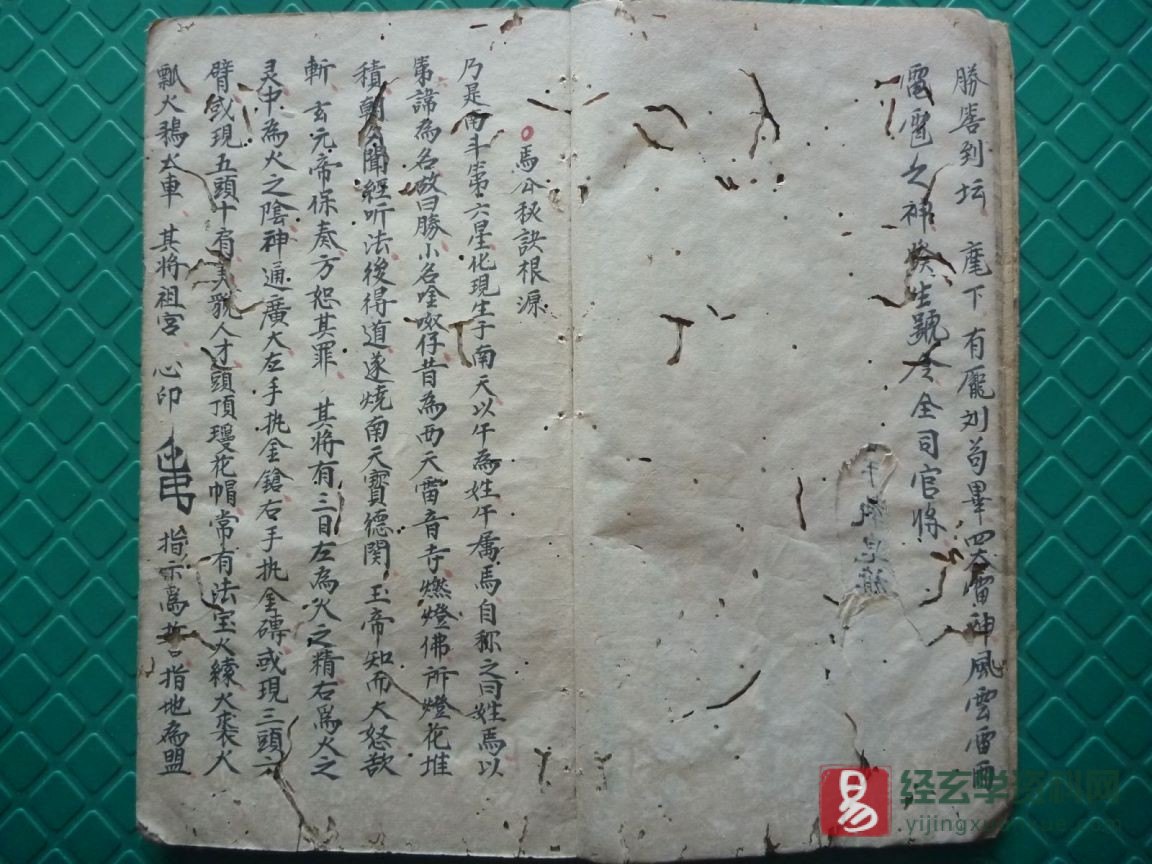 勝善到坛 麾下有龐刘苟畢四大雷神風雲雷雨
雷電之神發生號令全司官将
馬公秘訣根源
乃是南斗第六星化現生于南天以午為姓午属馬自称之曰姓馬以
第諱為名故曰勝小名仔昔為西天雷音寺燃燈佛所燈花堆
積朝久聞經听法後得道遂燒南天寶德関 玉帝知而大怒欲
斬 玄元帝保奏方恕其罪 其将有三目左為火之精右為火之
灵中為火之陰神通廣大左手执金鎗右手执金磚或現三頭六
臂或現五頭十肩美貌人才頭頂瓊花帽常有法宝火索火袋火
瓢火鵶火車 其将祖宫 心印 指示為 指地為盟
易 经玄学资料网
yijingxu